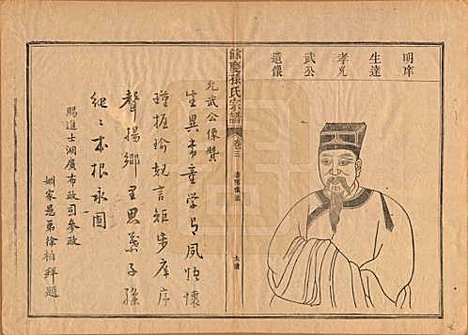 明庠
生達
孝兄
武公
遺像
餘慶孫氏宗譜
卷三
兄武公像贊
生異方童學有夙悟懷
瑾握瑜規言矩步庠序
聲揚鄉里思慕子孫
繩繩本根永固
賜進士湖廣布政司參政
姻家愚弟徐柏拜題